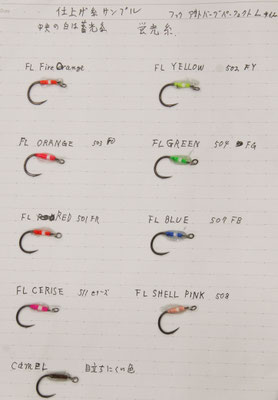 仕上げ糸サンプル
中央の白は蓄光糸 蛍光糸
FL Fire Orange
FL YELLOW 502 FY
FL ORANGE 503 FO
FL GREEN 504 FG
FL RED 501 FR
FL BLUE 509 FB
FL CERISE 511 セリーズ
FL SHELL PINK 508
CAMEL 目立ちにくい色